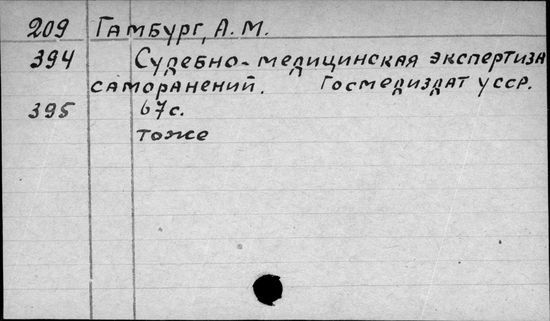 209 Гамбург, А. М.
394 Судебно-медицинская экспертиза
саморанений. Госмедиздат УССР.
395 67с.
тоже